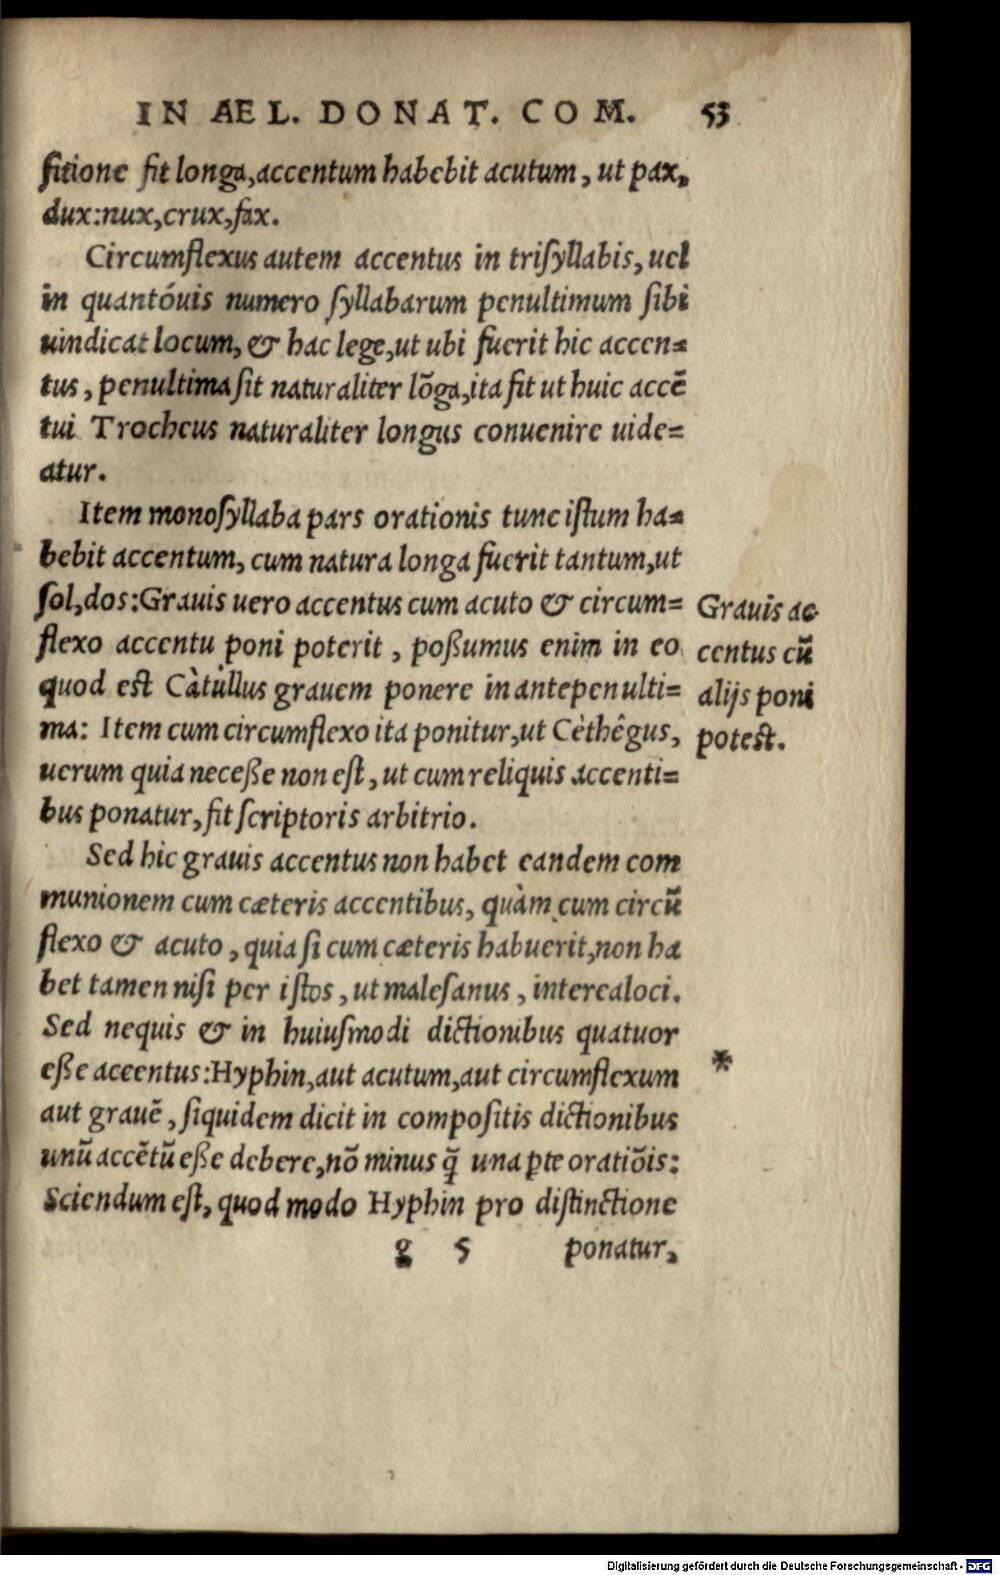 IN AEL. DONAT. COM. 53
ſitione fit longa,accentum habebit acutum, ut pax,
dux:nux,crux,fax.
Circumflexus autem accentus in triſyllabis, uel
in quantóuis numero ſyllabarum penultimum ſibi
uindicat locum, & hac lege,ut ubi fuerit hic accen=
tus, penultima ſit naturaliter lõga,ita fit ut huic accẽ
tui Trocheus naturaliter longus conuenire uide=
atur.
Item monoſyllaba pars orationis tunc iſtum ha=
bebit accentum, cum natura longa fuerit tantum,ut
ſol,dos:Grauis uero accentus cum acuto & circum=
flexo accentu poni poterit, poßumus enim in eo
quod est Càtúllus grauem ponere in antepenulti=
ma: Item cum circumflexo ita ponitur,ut Cèthêgus,
uerum quia neceße non eſt, ut cum reliquis accenti=
bus ponatur, fit ſcriptoris arbitrio.
Grauis ac
centus cũ
alijs poni
potest.
Sed hic grauis accentus non habet eandem com
munionem cum cæteris accentibus, quàm cum circũ
flexo & acuto, quia ſi cum cæteris habuerit,non ha
bet tamen niſi per iſtos, ut maleſanus, interealoci.
Sed nequis & in huiuſmodi dictionibus quatuor
eße accentus:Hyphin,aut acutum,aut circumflexum
*
aut grauẽ, ſiquidem dicit in compoſitis dictionibus
unũ accẽtũ eße debere,nõ minus q̃ una ꝑte oratiõis:
Sciendum eſt, quod modo Hyphin pro diſtinctione
g 5 ponatur,
Digitalisierung gefördert durch die Deutsche Forschungsgemeinschaft - DFG